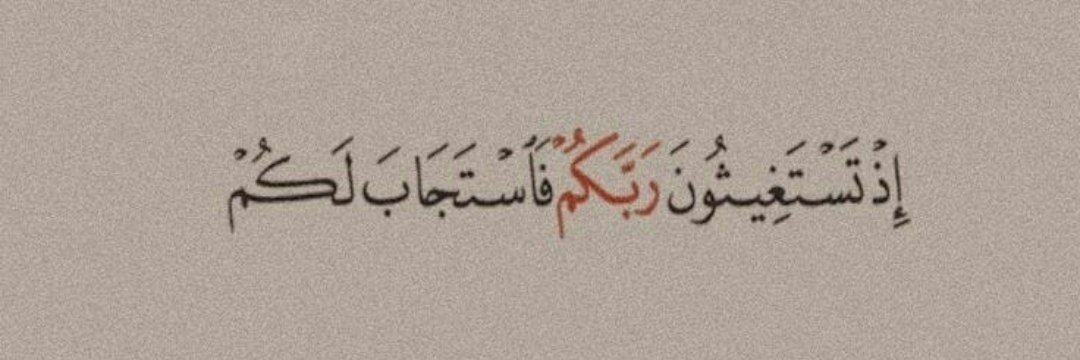 إِذْ تَسْتَغِيثُونَ رَبَّكُمْ فَٱسْتَجَابَ لَكُمْ